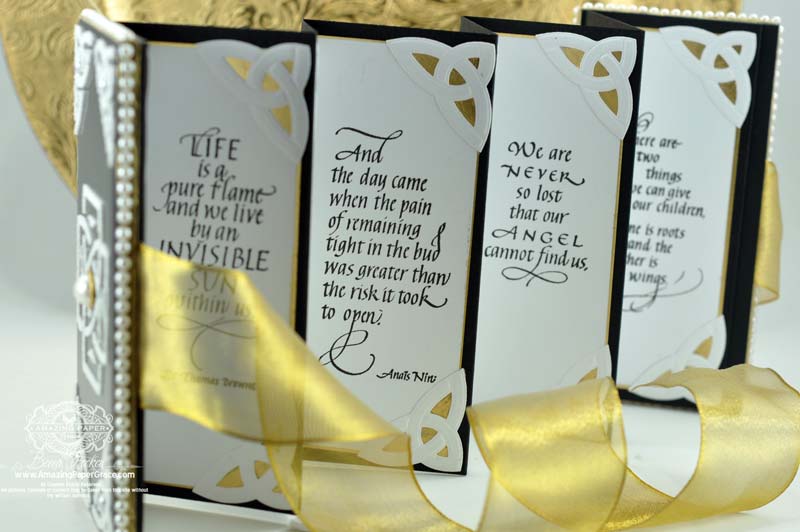 LIFE
is a
pure flame
and we live
by an
INVISIBLE
SUN
within us.
Sir Thomas Browne
And
the day came
when the pain
of remaining
tight in the bud
was greater than
the risk it took
to open.
Anaïs Nin
We are
NEVER
so lost
that our
ANGEL
cannot find us.
here are
two
things
we can give
our children,
ne is roots
and the
her is
wings.
AMAZING PAPER
www.AmazingPaperGrace.com